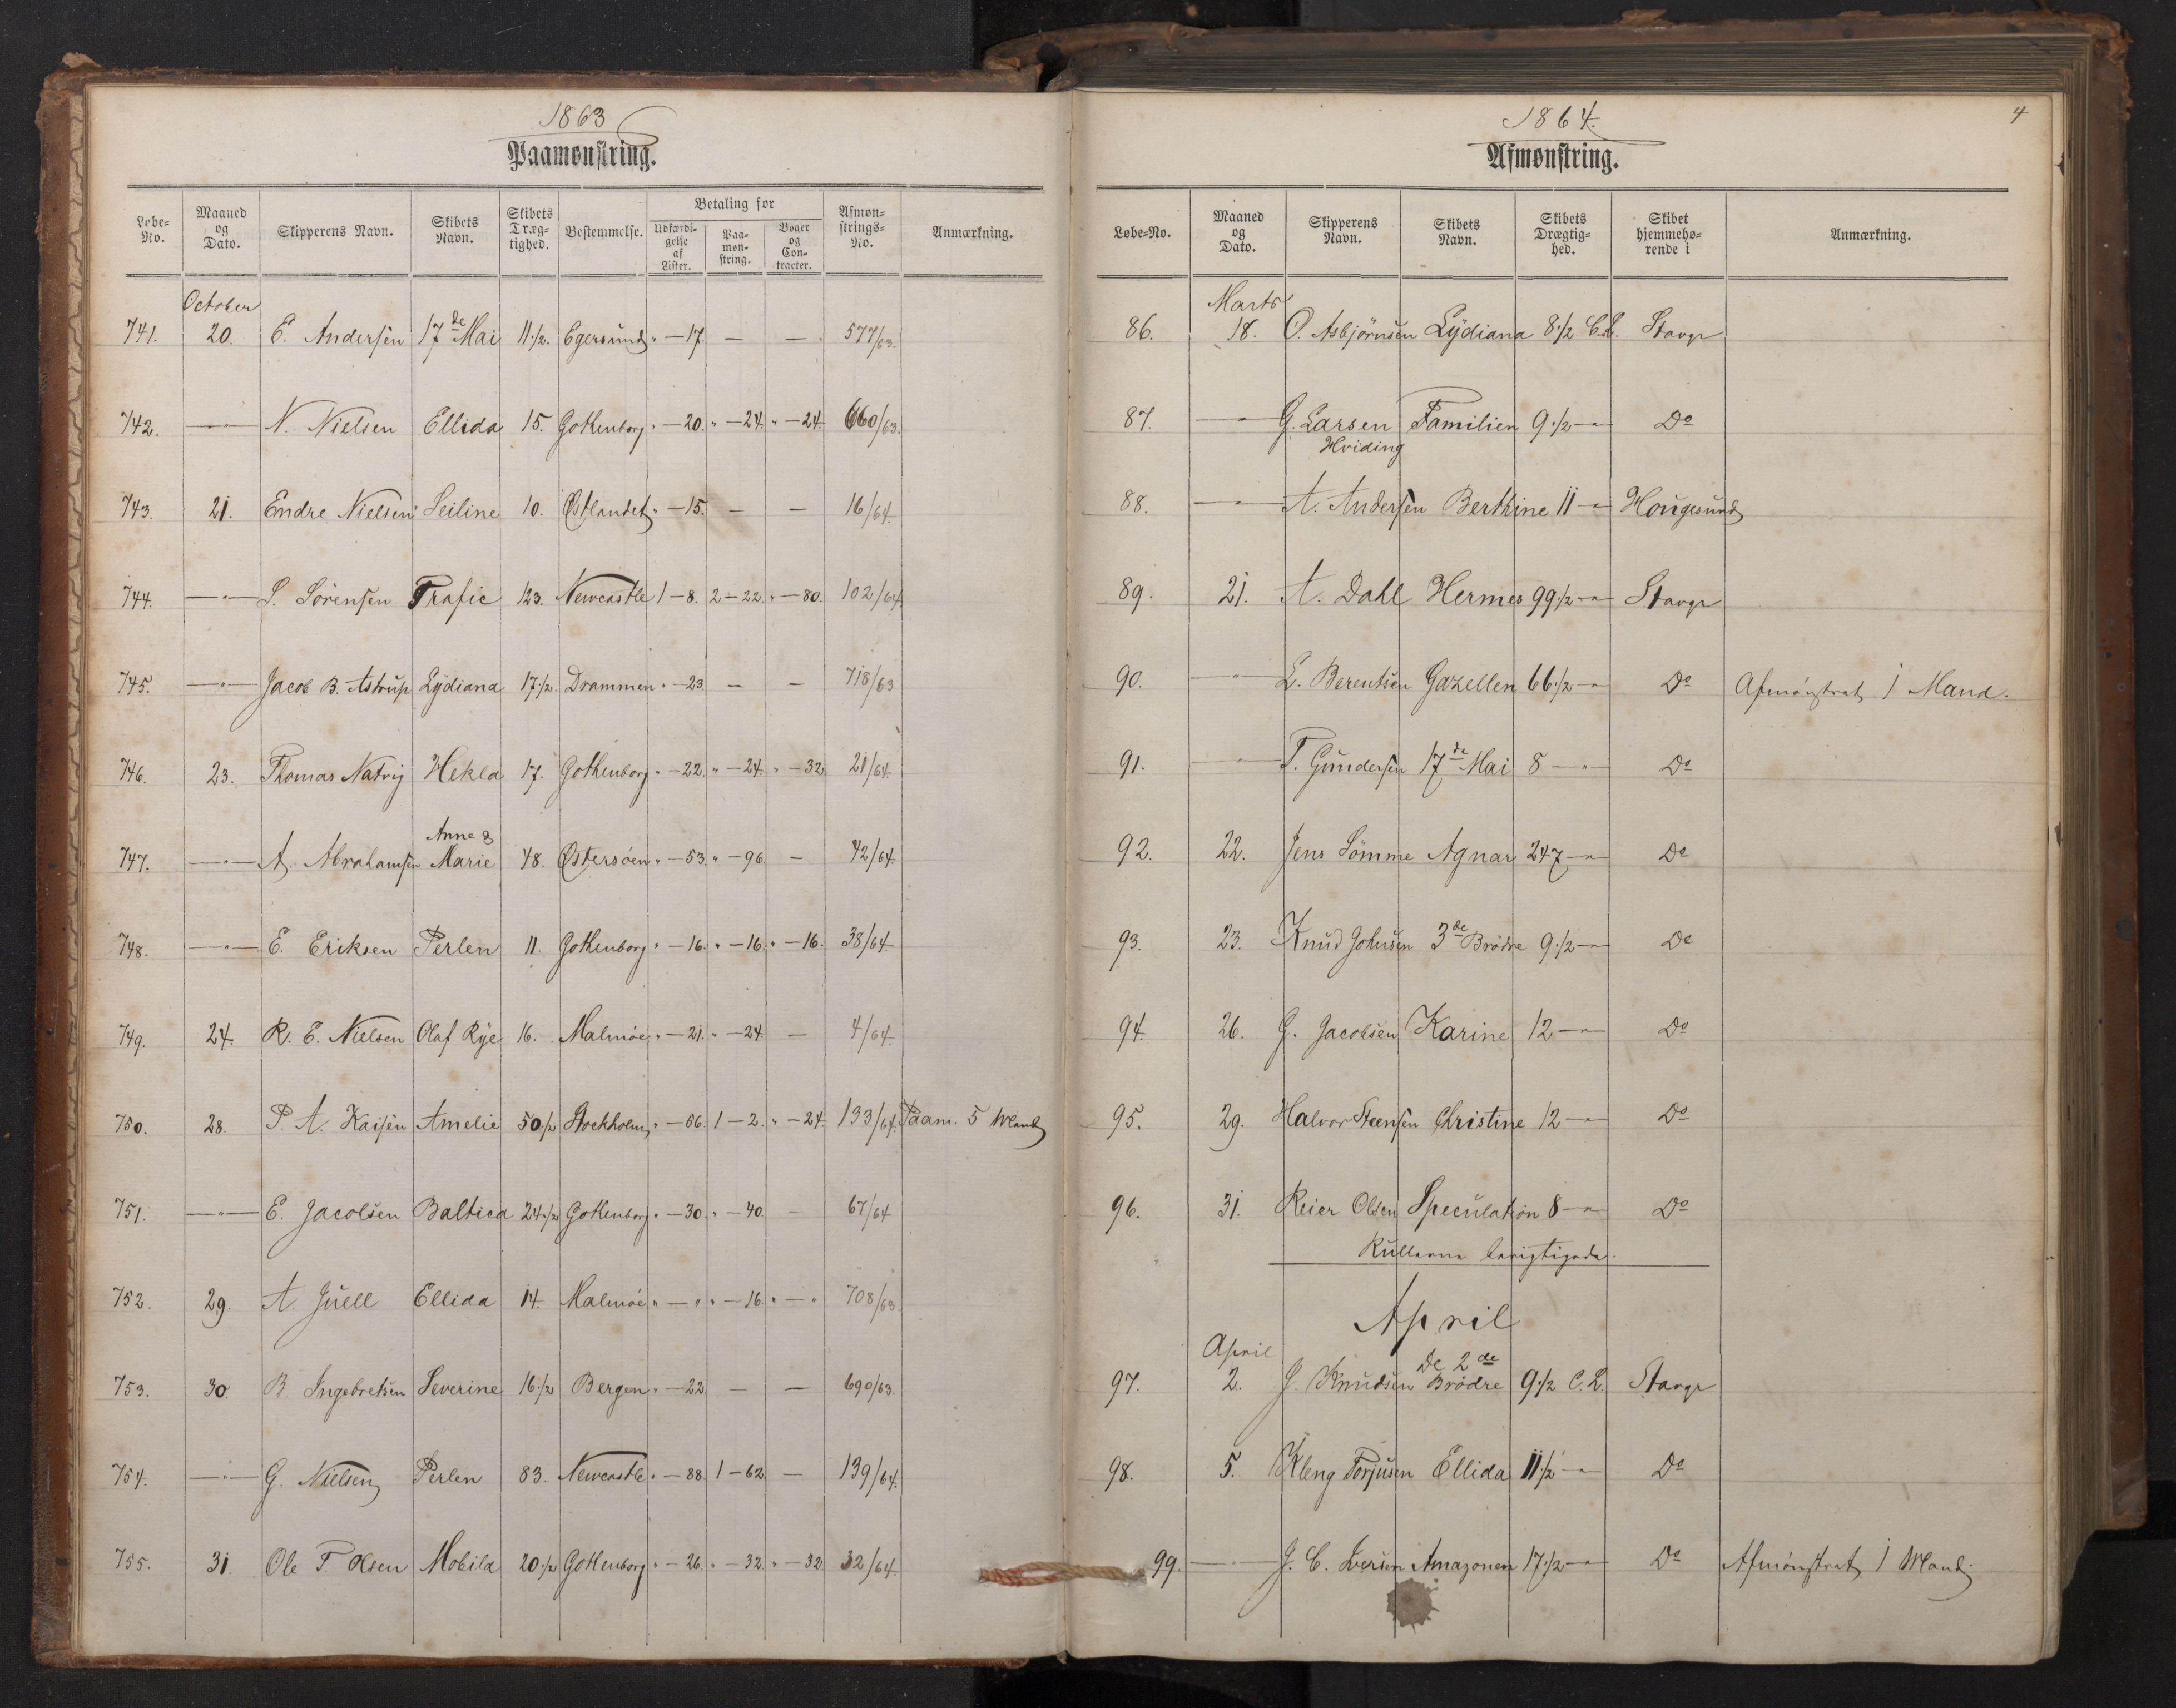 1863
Paamønstring.
Løbe-No. Maaned og Dato. Skipperens Navn. Skibets Navn. Skibets Dræg-tighed. Bestemmelse. Betaling for Udfærdi-gelse af Lister. Paa-møn-string. Bøger og Con-tracter. Afmøn-strings-No. Anmærkning.
October
741. 20. E. Andersen 17de Mai 11 1/2. Egersund " — 17. — — 577/63.
742. —"— N. Nielsen Ellida 15. Gothenborg " — 20. " — 24. " — 24. 660/63.
743. 21. Endre Nielsen Seiline 10. Østlandet " — 15. — — 16/64.
744. —"— S. Sörensen Trafic 123. Newcastle 1 — 8. 2 — 22. " — 80. 102/64
745. —"— Jacob B. Astrup Lydiana 17 1/2. Drammen " — 23 — — 718/63
746. 23. Thomas Natvig Hekla 17. Gothenborg " — 22. " — 24. " — 32. 21/64.
Anne &
747. —"— A. Abrahamsen Marie 48. Østersöen " — 53. " — 96. — 42/64.
748. —"— E. Eriksen Perlen 11. Gothenborg " — 16. " — 16. " — 16. 38/64.
749. 24. R. E. Nielsen Olaf Rye 16. Malmöe " — 21. " — 24. — 4/64.
750. 28. P. A. Kaisen Amelie 50 1/2 Stockholm " — 56. 1 — 2. " — 24. 133/64. Paam. 5 Mand
751. —"— E. Jacobsen Baltica 24 1/2 Gothenborg " — 30. " — 40. — 67/64
752. 29. A. Juell Ellida 14. Malmöe " — " " — 16. " — " 708/63.
753. 30. B Ingebretsen Severine 16 1/2 Bergen " — 22 — — 690/63.
754. —"— G. Nielsen Perlen 83. Newcastle " — 88. 1 — 62. — 139/64.
755. 31. Ole T. Olsen Mobila 20 1/2 Gothenborg " — 26. " — 32. " — 32. 32/64.
4
1864.
Afmønstring.
Løbe-No. Maaned og Dato. Skipperens Navn. Skibets Navn. Skibets Drægtig-hed. Skibet hjemmehø-rende i Anmærkning.
Marts
86. 18. O. Asbjörnsen Lydiana 8 1/2 C.L. Stavgr
87. —"— G. Larsen Familien 9 1/2 —"— Do
Hviding
88. —"— A. Andersen Berthine 11 —"— Hougesund
89. 21. A. Dahl Hermes 99 1/2 —"— Stavgr
90. —"— L. Berentsen Gazellen 66 1/2 —"— Do Afmönstrat 1 Mand.
91. —"— T. Gundersen 17de Mai 8 —"— Do
92. 22. Jens Sömme Agnar 247 —"— Do
93. 23. Knud Johnsen 3de Brödre 9 1/2 —"— Do
94. 26. G. Jacobsen Karine 12 —"— Do
95. 29. Halvor Steensen Christine 12 —"— Do
96. 31. Reier Olsen Speculation 8 —"— Do
Rullerne
April
April
De 2de
97. 2. J. Knudsen Brödre 9 1/2 C.L. Stavgr
98. 5. Kleng Torjusen Ellida 11 1/2 —"— Do
99. —"— J. C. Iversen Amazonen 17 1/2 —"— Do Afmönstrat 1 Mand.